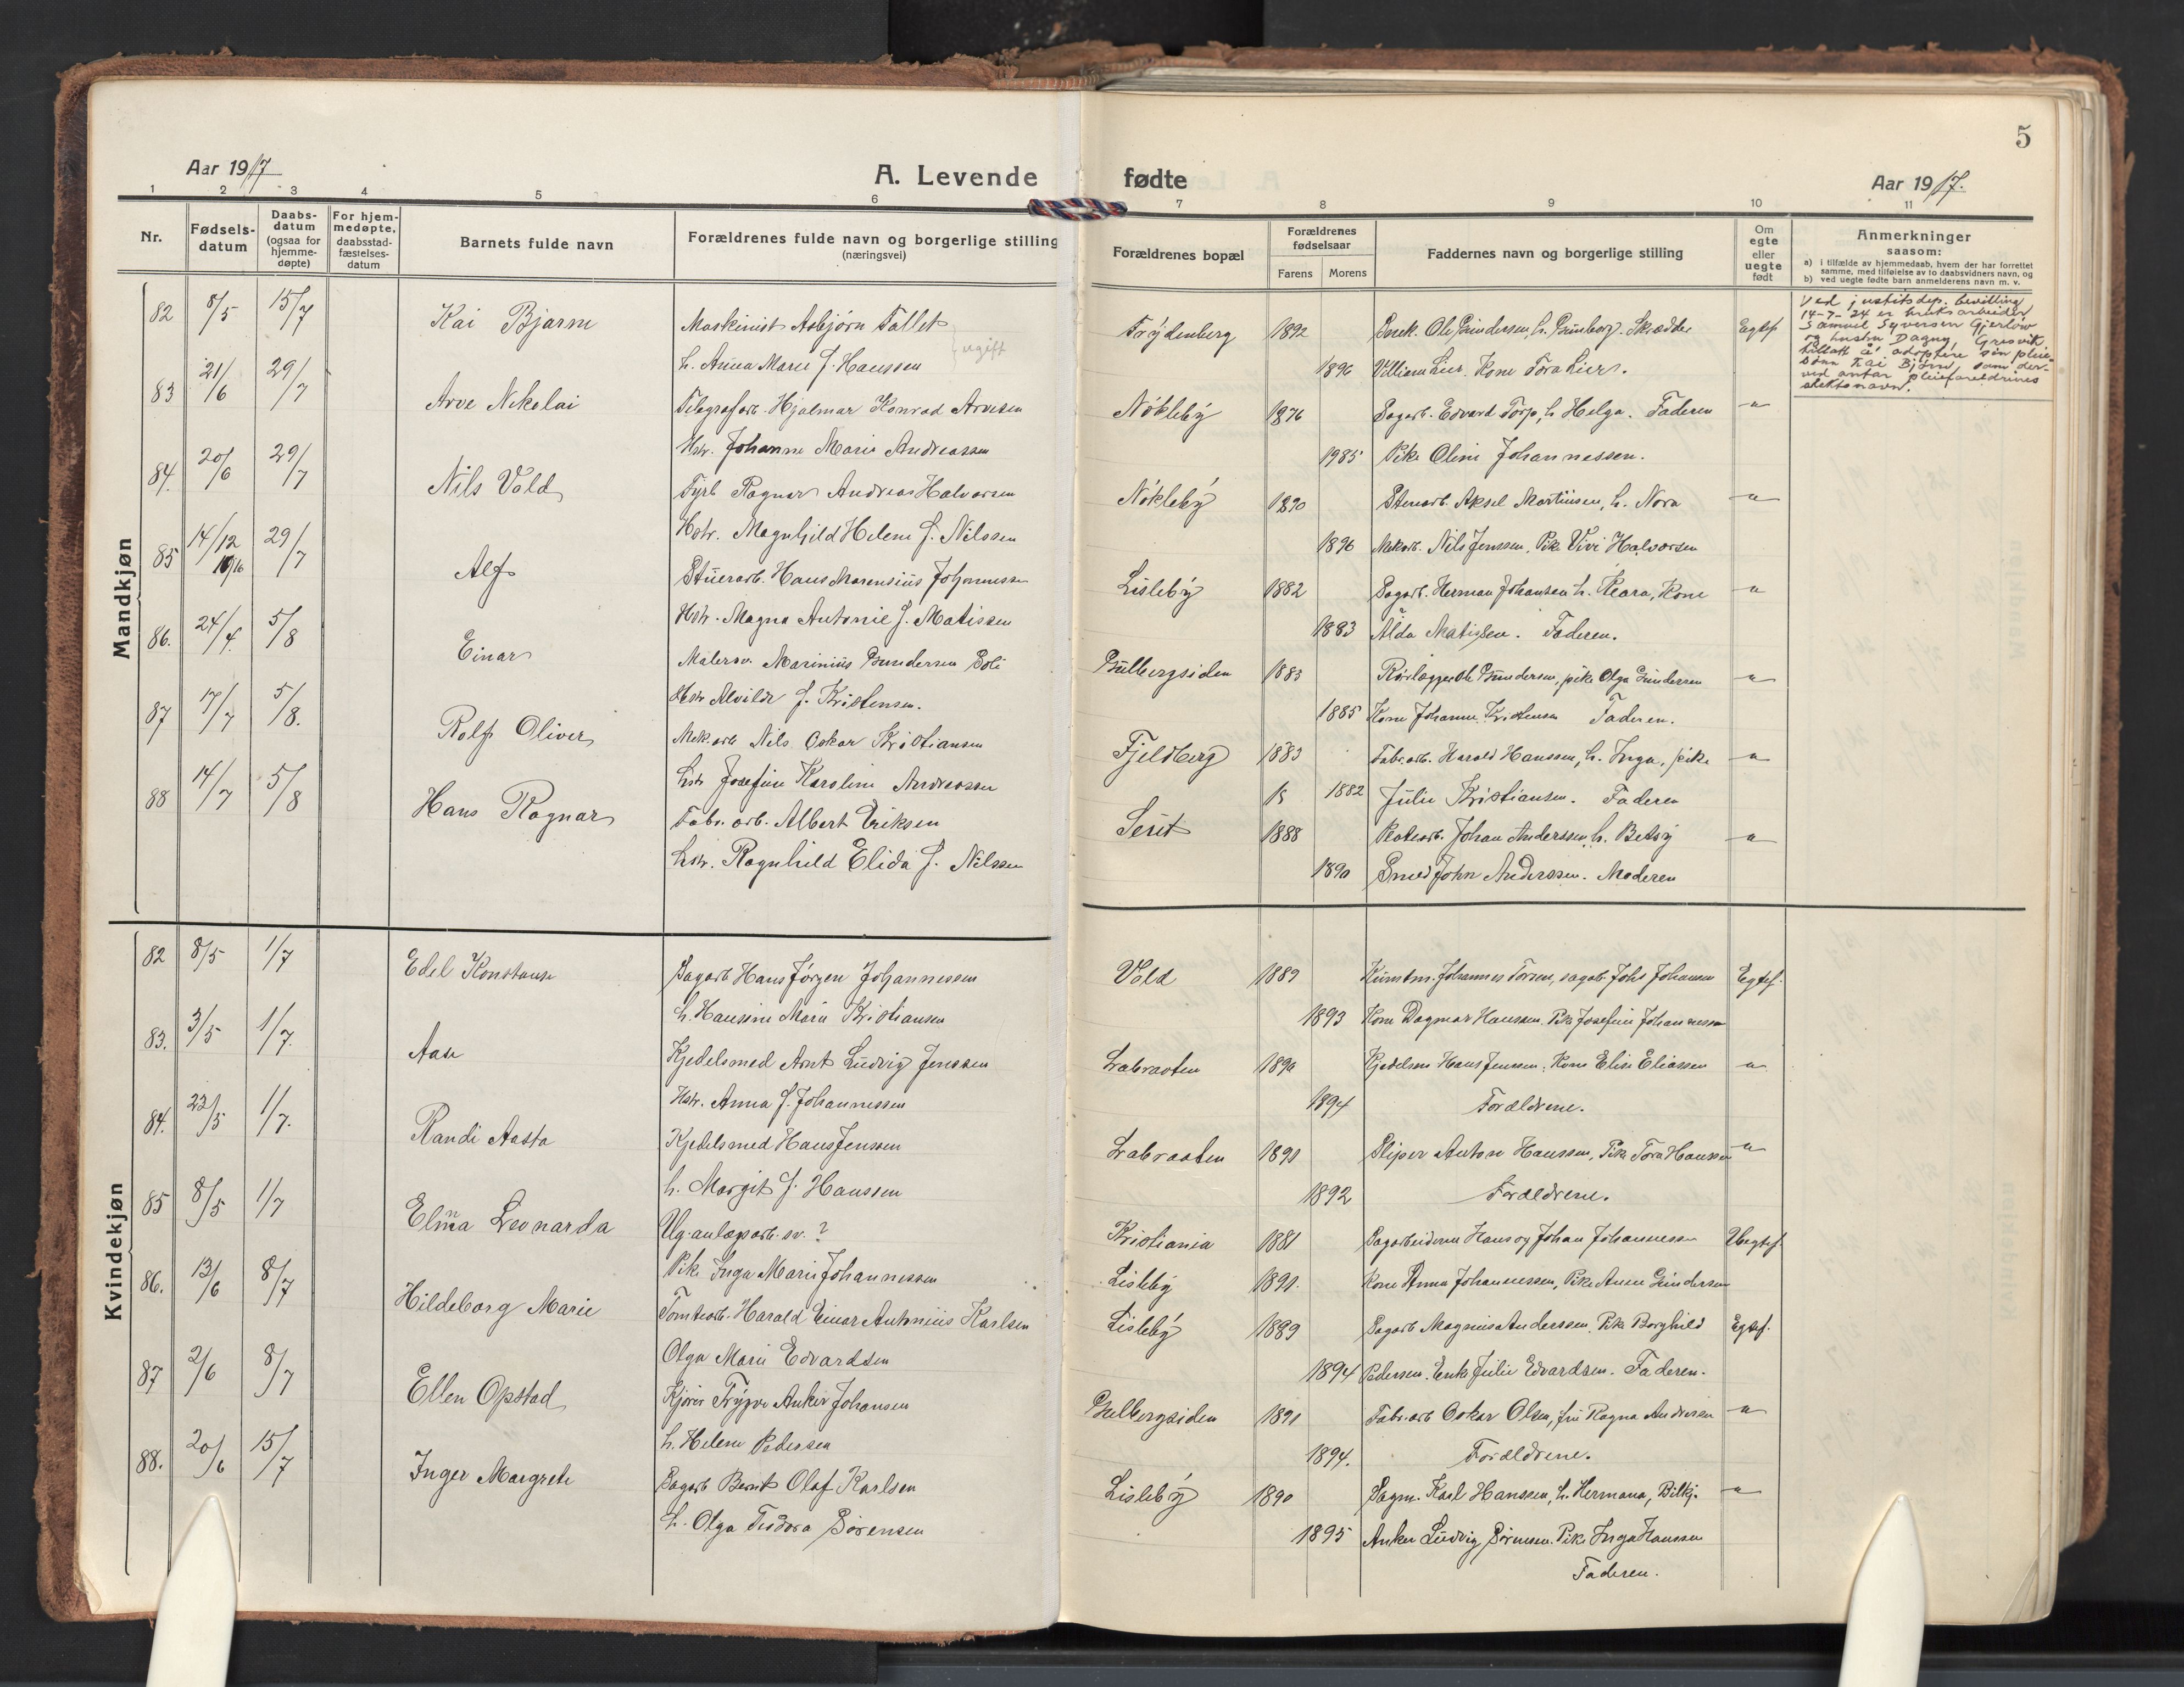 5
Aar 1917
A. Levende
fødte
Aar 1917.
1 2 3 4 5 6 7 8 9 10 11
Nr.
Fødsels-
datum
Daabs-
datum
(ogsaa for
hjemme-
døpte)
For hjem-
medøpte,
daabsstad-
fæstelses-
datum
Barnets fulde navn
Forældrenes fulde navn og borgerlige stilling
(næringsvei)
Forældrenes bopæl
Forældrenes
fødselsaar
Farens Morens
Faddernes navn og borgerlige stilling
Om
egte
eller
uegte
født
Anmerkninger
saasom:
a) i tilfælde av hjemmedaab, hvem der har forrettet
samme, med tilføielse av to daabsvidners navn, og
b) ved uegte fødte barn anmelderens navn m. v.
Mandkjøn
82 8/5 15/7 Kai Bjarne Maskinist Asbjørn Tallet
ugift
h. Anna Marie f. Hanssen
Frydenberg 1892 Snek. Ole Gundersen, h. Gunborg. Skrædder Egtef.
1896 Villiam Lier. Kone Tora Lier.
Ved justitsdep. bevilling
14-7-'24 er bruksarbeider
Samuel Syversen Gjerløw
og hustru Dagny, Gresvik
tillatt å adoptere sin pleie-
sønn Kai Bjørn, som der-
ved antar pleieforeldrenes
slektsnavn.
83 21/6 29/7 Arve Nikolai Telegrafarb. Hjalmar Konrad Arvesen
Hstr. Johanne Marie Andreassen
Nøkleby 1876 Sagarb. Edvard Torp, h. Helga. Faderen "
1985 Pike Oline Johannessen.
84. 20/6 29/7 Nils Vold Fyrb Ragnar Andreas Halvorsen
Hstr. Magnhild Helene f. Nilssen
Nøkleby 1890 Stenarb. Aksel Martinsen, h. Nora "
1896 Mekarb. Nils Jenssen, Pike Vivi Halvorsen
85 14/12 1916 29/7 Alf Stuerarb. Hans Marensius Johannessen
Hstr. Magna Antonie f. Matissen
Lisleby 1882 Sagarb. Herman Johansen h. Klara, Kone "
1883 Alda Matissen. Faderen.
86. 24/4. 5/8 Einar Malersv. Marinius Gundersen Boli
Hstr Alvilde f. Kristensen.
Gulbergsiden 1883 Rørlægger Ole Gundersen, pike Olga Gundersen "
1885 Kone Johanne Kristensen Faderen.
87 17/7 5/8. Rolf Oliver Mek.arb Nils Oskar Kristiansen
hstr Josefine Karoline Andreassen
Fjeldberg 1883 Fabr.arb. Harald Hanssen, h. Inga, pike "
18 1882 Julie Kristiansen. Faderen
88 14/7 5/8 Hans Ragnar Fabr. arb. Albert Eriksen
hstr. Ragnhild Elida f. Nilssen
Seut 1888 Johan Anderssen, h. Betsy "
1890 Smed John Anderssen. Moderen
Kvindekjøn
82 8/5 1/7 Edel Konstanse Sagarb Hans Jørgen Johannessen
h. Hansine Marie Kristiansen
Vold 1889 Kunstm. Johannes Torsen, sagab. Johs Johansen Egtef.
1893 Kone Dagmar Hanssen. Pike Josefine Johannessen
83. 3/5 1/7. Aase Kjedelsmed Arnt Ludvig Jenssen
Hstr. Anna f. Johannessen
Labraaten 1890 Kjedelsm Hans Jenssen. Kone Elise Eliassen "
1894 Forældrene.
84. 23/5 1/7. Randi Aasta Kjedelsmed Hans Jenssen
h. Margit f. Hanssen
Labraaten 1891 Sliper Anton Hanssen, Pike Tora Hanssen "
1892 Forældrene.
85 8/5 1/7 Elma Leonarda Ug. anlægsarb. sv. ?
Pike Inga Marie Johannessen
Kristiania 1881 Sagarbeiderne Hans og Johan Johannessen Uegtef.
Lisleby 1891. Kone Anna Johannessen, Pike Anne Gundersen
86. 13/6 8/7 Hildeborg Marie Tomtearb. Harald Einar Antonius Karlsen
Olga Marie Edvardsen
Lisleby 1889 Sagarb Magnus Anderssen. Pike Borghild Egtef.
1894 Pedersen. Enke Julie Edvardsen. Faderen.
87 2/6 8/7 Ellen Opstad Kjører Trygve Anker Johansen
h. Helene Pedersen
Gulbergsiden 1891 Fabr.arb Oskar Olsen, fru Ragna Andersen "
1894. Forældrene.
88. 20/6 15/7 Inger Margrete Sagarb Bernt Olaf Karlsen
h. Olga Teodora Sørensen
Lisleby 1890 Sagm. Karl Hanssen, h. Hermana, Bilkj. "
1895 Anker Ludvig Sørensen. Pike Inga Hanssen
Faderen.